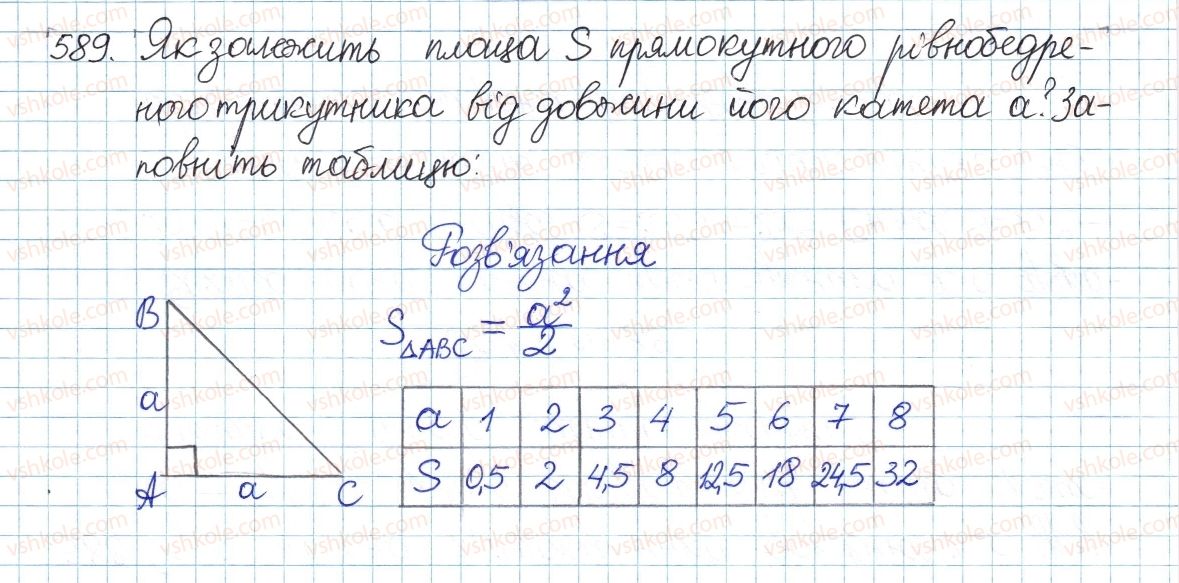 589. Як залежить площа S прямокутного рівнобедре-
ного трикутника від довжини його катета a? За-
повніть таблицю:
Розв'язання
B
a
A a C
S△ABC = a²/2
a 1 2 3 4 5 6 7 8
S 0,5 2 4,5 8 12,5 18 24,5 32
vshkole.com